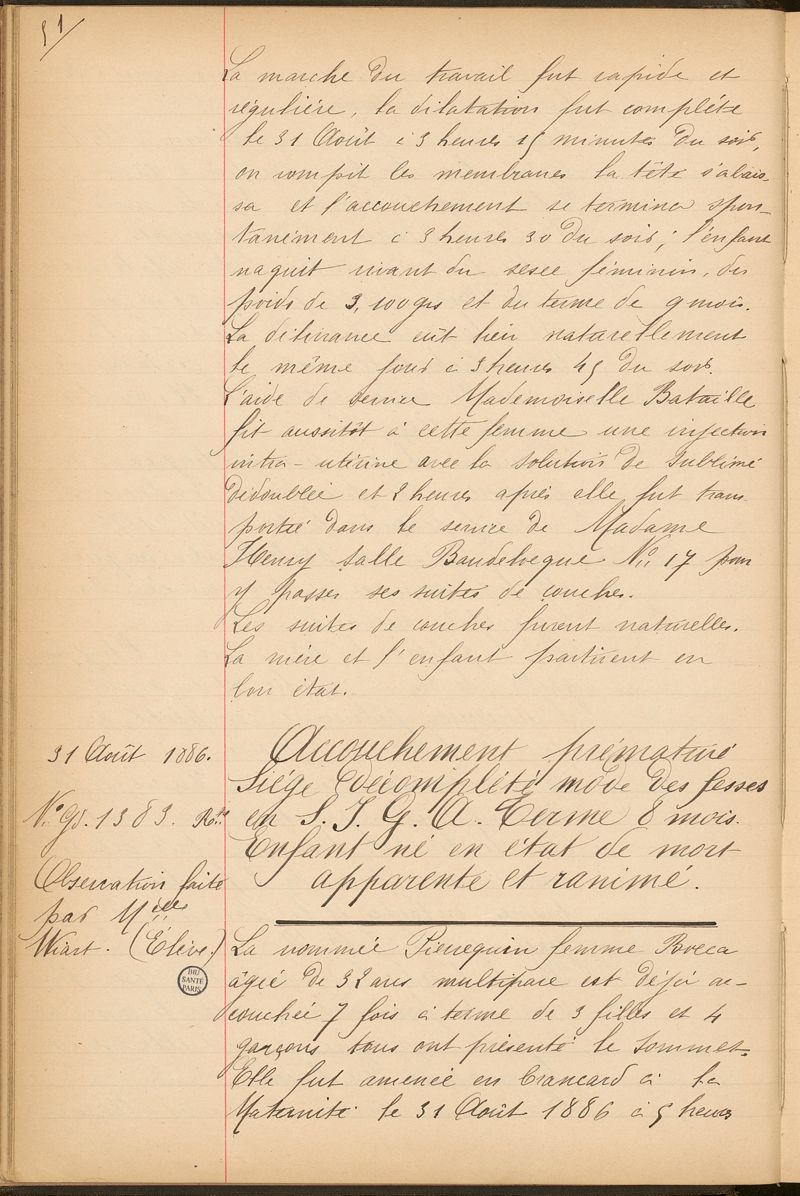 51/
La marche du travail fut rapide et
régulière, la dilatation fut complète
le 31 Août à 3 heures 15 minutes du soir,
on rompit les membranes la tête s'abais-
sa et l'accouchement se termina spon-
tanément à 3 heures 30 du soir; l'enfant
naquit vivant du sexe féminin, du
poids de 3,100 grs et du terme de 9 mois.
La délivrance eût lieu naturellement
le même jour à 3 heures 45 du soir.
L'aide de service Mademoiselle Bataille
fit aussitôt à cette femme une injection
intra-utérine avec la solution de sublimé
dédoublée et 2 heures après elle fut trans-
portée dans le service de Madame
Henry salle Baudelocque No 17 pour
y passer ses suites de couches.
Les suites de couches furent naturelles.
La mère et l'enfant partirent en
bon état.
31 Août 1886.
No Gd. 1383.
Observation faite
par Melle
Wiart. (Élève.)
Accouchement prématuré
Siège décomplété mode des fesses
en S. I. G. A. Terme 8 mois.
Enfant né en état de mort
apparente et ranimé.
La nommée Pierrequin femme
âgée de 32 ans multipare est déjà ac-
couchée 7 fois à terme de 3 filles et 4
garçons tous ont présenté le sommet.
Elle fut amenée en brancard à la
Maternité le 31 Août 1886 à 5 heures
BIU
SANTE
PARIS